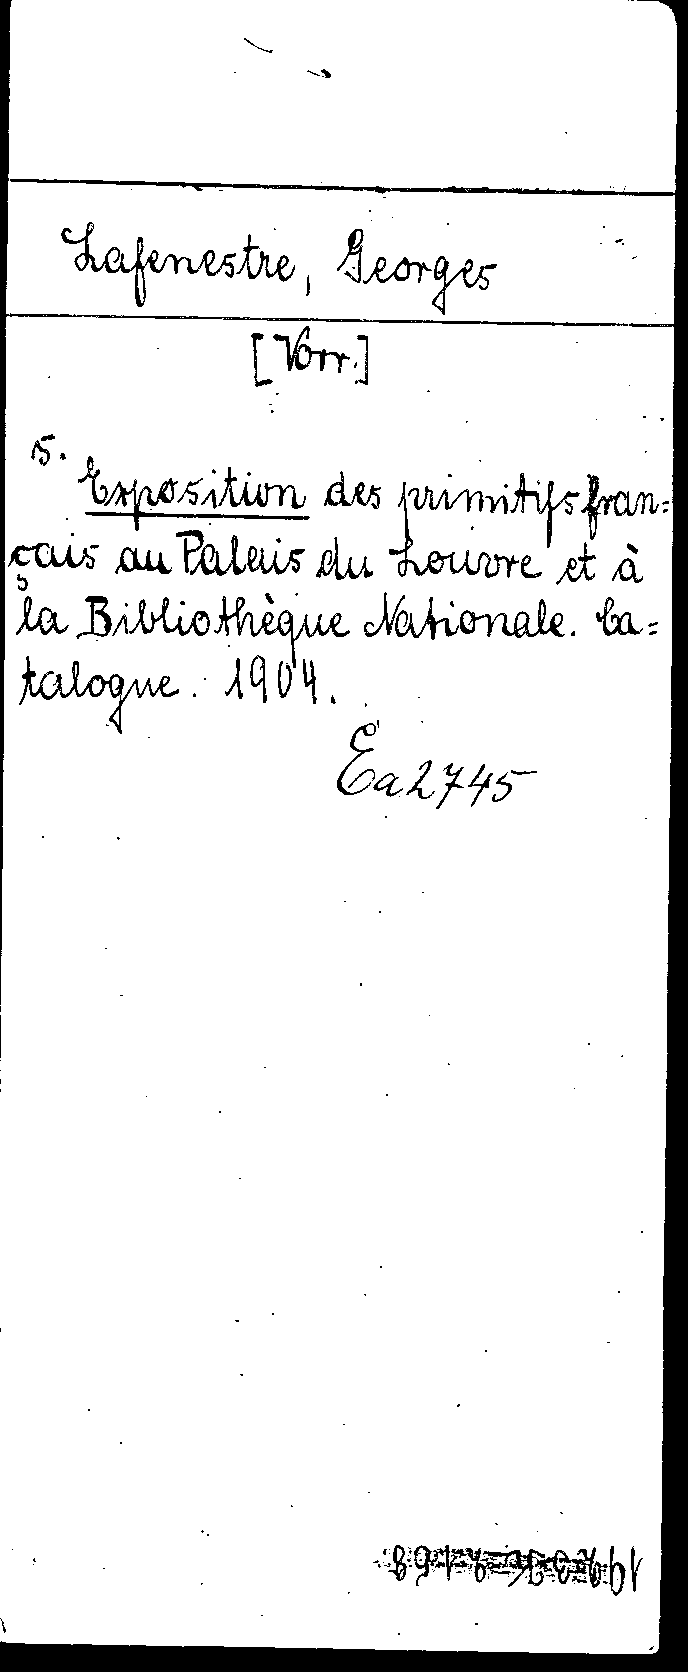 Lafenestre, Georges
[Vorr.]
5.
Exposition des primitifs fran=
çais au Palais du Louvre et à
la Bibliothèque Nationale. Ca=
talogue. 1904.
Ea 2745